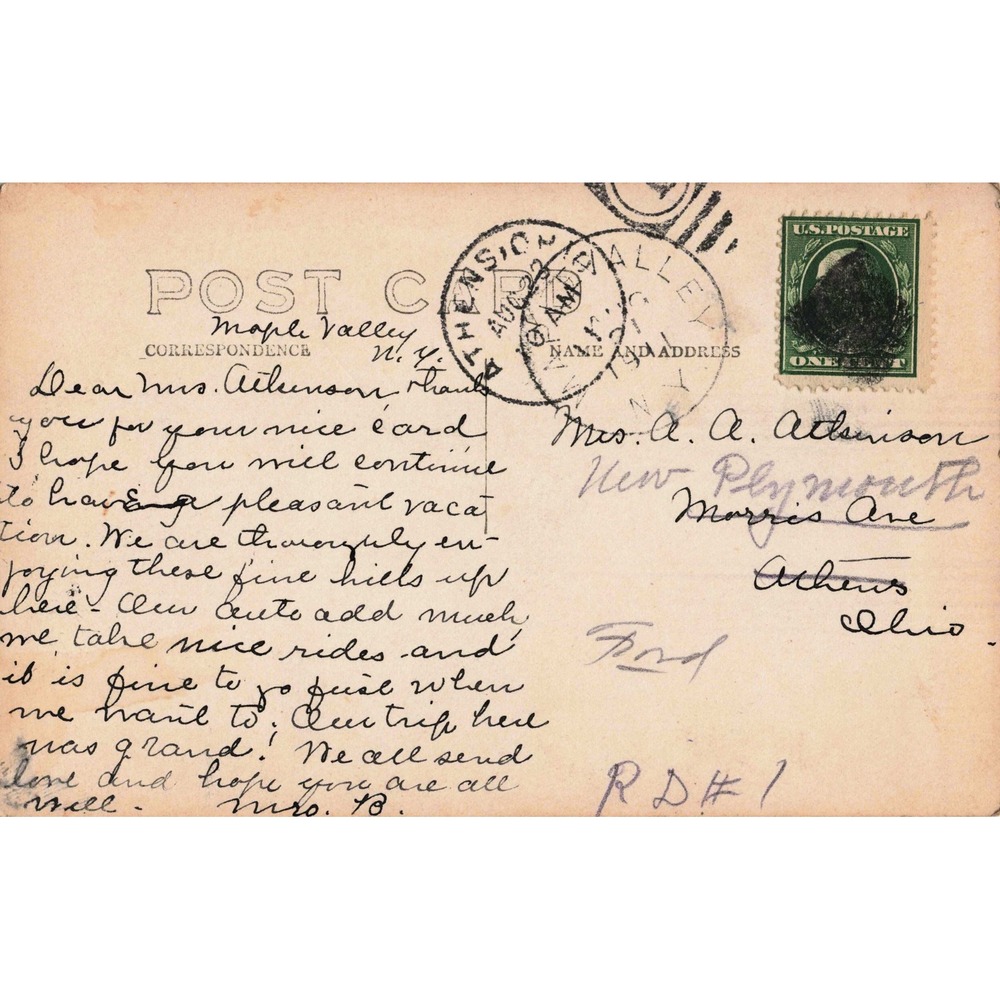 POST CARD
Maple Valley
N.Y.
CORRESPONDENCE
NAME AND ADDRESS
Dear Mrs. Atkinson thank
you for your nice card
I hope you will continue
to have a pleasant vaca
tion. We are thoroughly en-
joying these fine hills up
here - Our auto add much,
we take nice rides and
it is fine to go just when
we want to. Our trip here
was grand! We all send
love and hope you are all
well - Mrs. B.
ATHENS, OHIO
AUG 23
AM
MAPLE VALLEY
N.Y.
U.S. POSTAGE
ONE CENT
Mrs. A. A. Atkinson
New Plymouth
Morris Ave
Athens
Ohio.
Ford
R D # 1